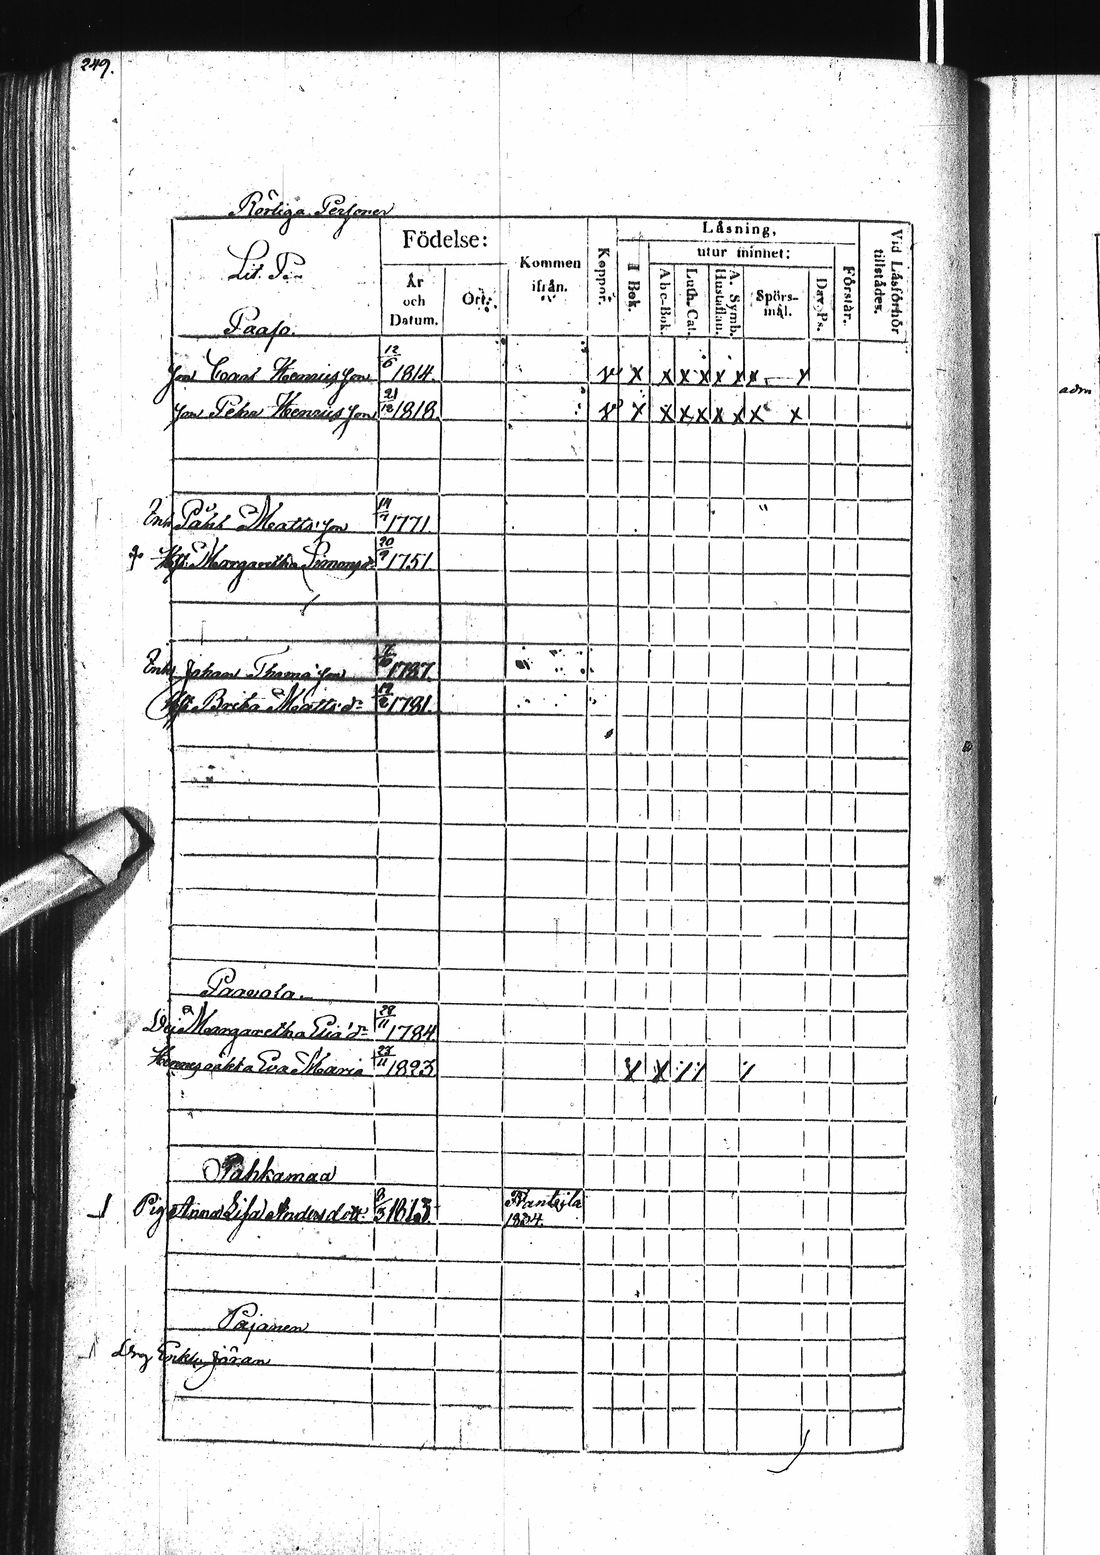 249.
Rörliga Personer
Lit. P.
Paaso.
Födelse:
År och Datum.
Ort.
Kommen ifrån.
Koppor.
I Bok.
Läsning,
utur minnet:
Abc-Bok.
Luth. Cat.
A. Symb. Hustaflan.
Spörsmål.
Dav. Ps.
Förstår.
Vid Läsförhör tillstädes.
Son Carl Henriksson 12/6 1814. v x x x x x x x x
Son Petter Henriksson 21/12 1818. v x x x x x x x x
Enk Påhl Mattsson 14/7 1771
Hust. Margaretha Simonsd. 20/9 1751
Enk Johan Thomasson 1787.
Hu Brita Mattsd. 19/2 1781.
Paavola.
Margaretha Eliæ d. 29/11 1784
Eva Maria 23/11 1823
Pahkamaa
Pig Anna Lisa Andersdott. 8/3 1813. Frantsila 1834.
Pajanen
Drg Erkki Jöran
adm